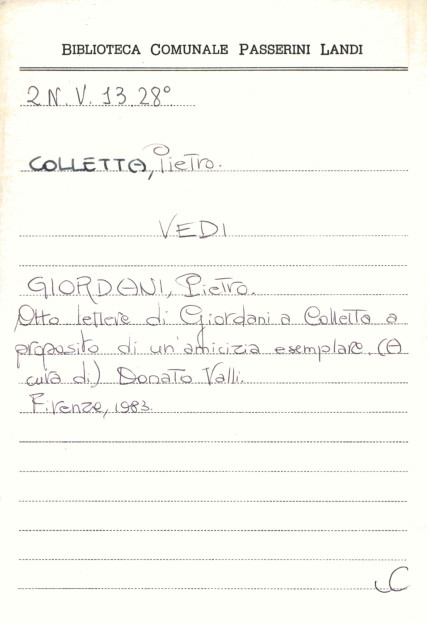 BIBLIOTECA COMUNALE PASSERINI LANDI
2 N. V. 13 28°
COLLETTA, Pietro.
VEDI
GIORDANI, Pietro.
Otto lettere di Giordani a Colletta a
proposito di un'amicizia esemplare. (A
cura di) Donato Valli.
Firenze, 1983.
C